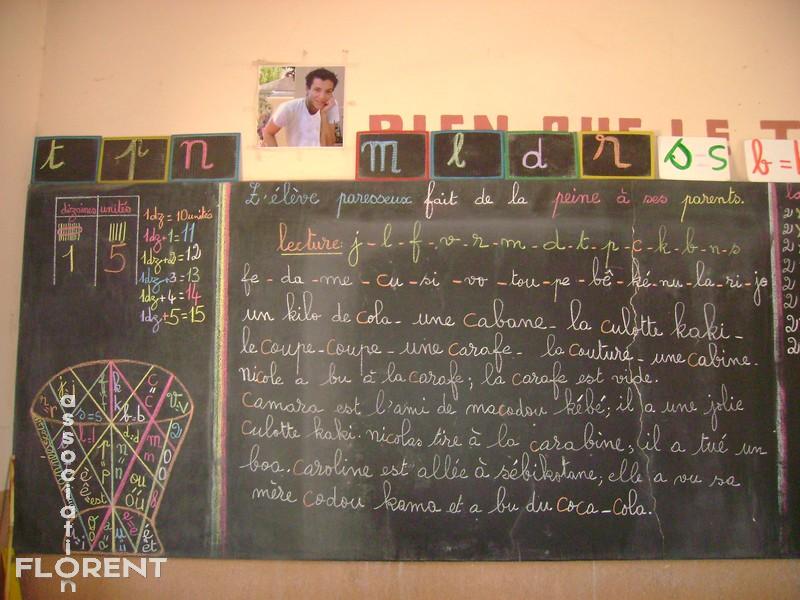 BIEN QUE LE T
t p n m l d r s=s b=
L'élève paresseux fait de la peine à ses parents.
dizaines unités
1 5
1dz = 10 unités
1dz+1 = 11
1dz+2 = 12
1dz+3 = 13
1dz+4 = 14
1dz+5 = 15
lecture: j - l - f - v - r - m - d - t - p - c - k - b - n - s
fe - da - me - cu - si - vo - tou - pe - bê - ké - nu - la - ri - je
un kilo de cola - une cabane - la culotte kaki -
le coupe-coupe - une carafe - la couture - une cabine.
Nicole a bu à la carafe; la carafe est vide.
Camara est l'ami de macodou kébé; il a une jolie
culotte kaki. nicolas tire à la carabine; il a tué un
boa. Caroline est allée à sébikotane; elle a vu sa
mère codou kama et a bu du coca-cola.
association
FLORENT